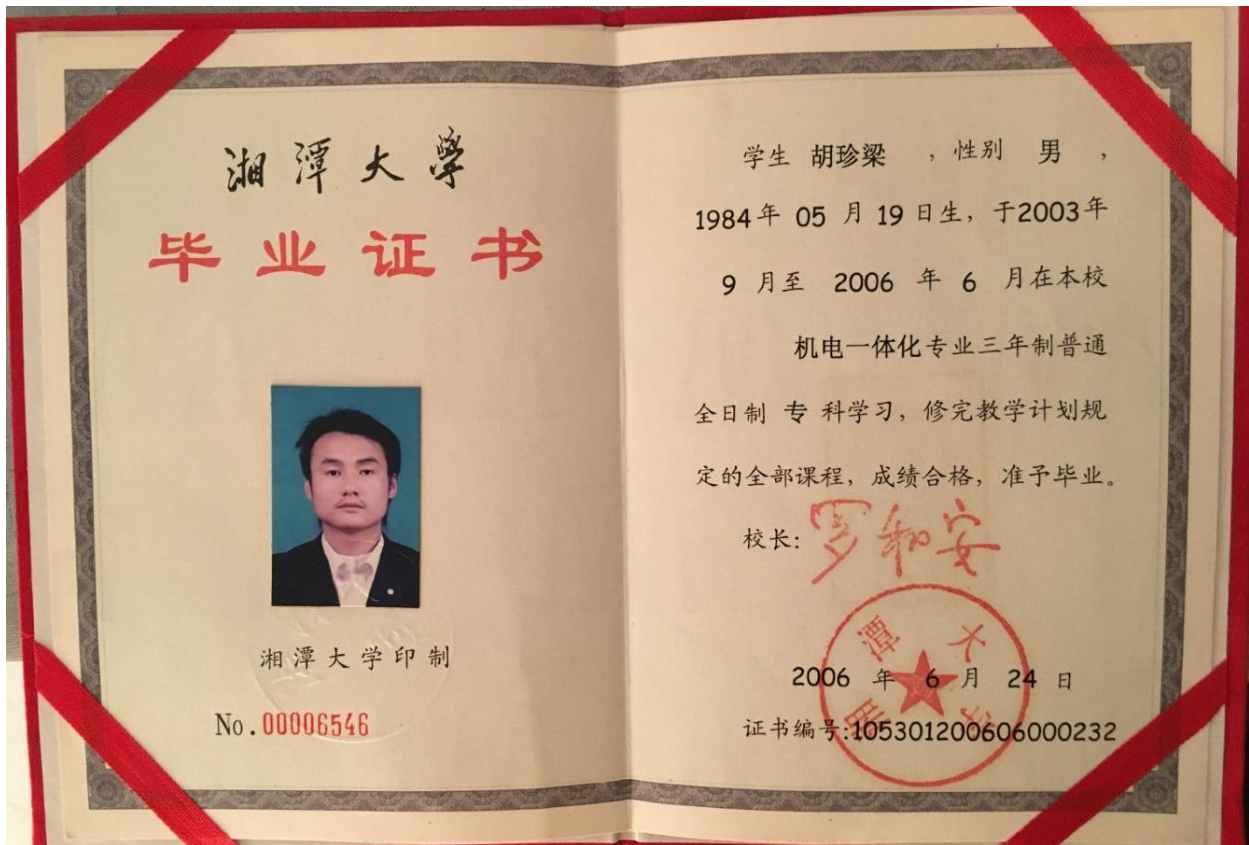 湘潭大學
毕业证书
湘潭大学印制
No.00006546
学生 胡珍梁 ，性别 男 ，
1984年 05 月 19 日生，于2003年
9 月至 2006 年 6 月在本校
机电一体化专业三年制普通
全日制 专 科学习，修完教学计划规
定的全部课程，成绩合格，准予毕业。
校长：罗和安
湘潭大学
2006 年 6 月 24 日
证书编号:105301200606000232